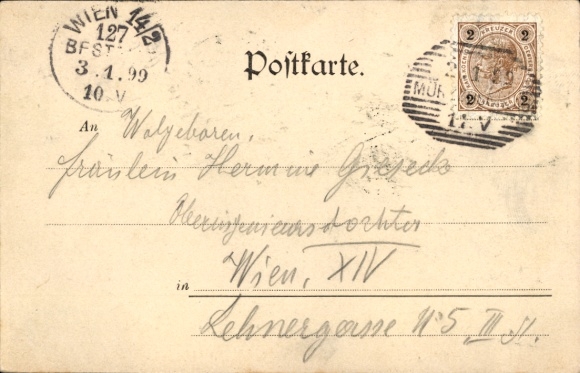 WIEN 14/2
127
BEST
3.1.99
10.V
Postkarte.
2 KREUZER 2
2 2
1 99
MÜR
11.V
An Wolgeboren,
fräulein Hermine
Oberingenieurstochter
in Wien, XIV
Lehnergasse N: 5, III St.